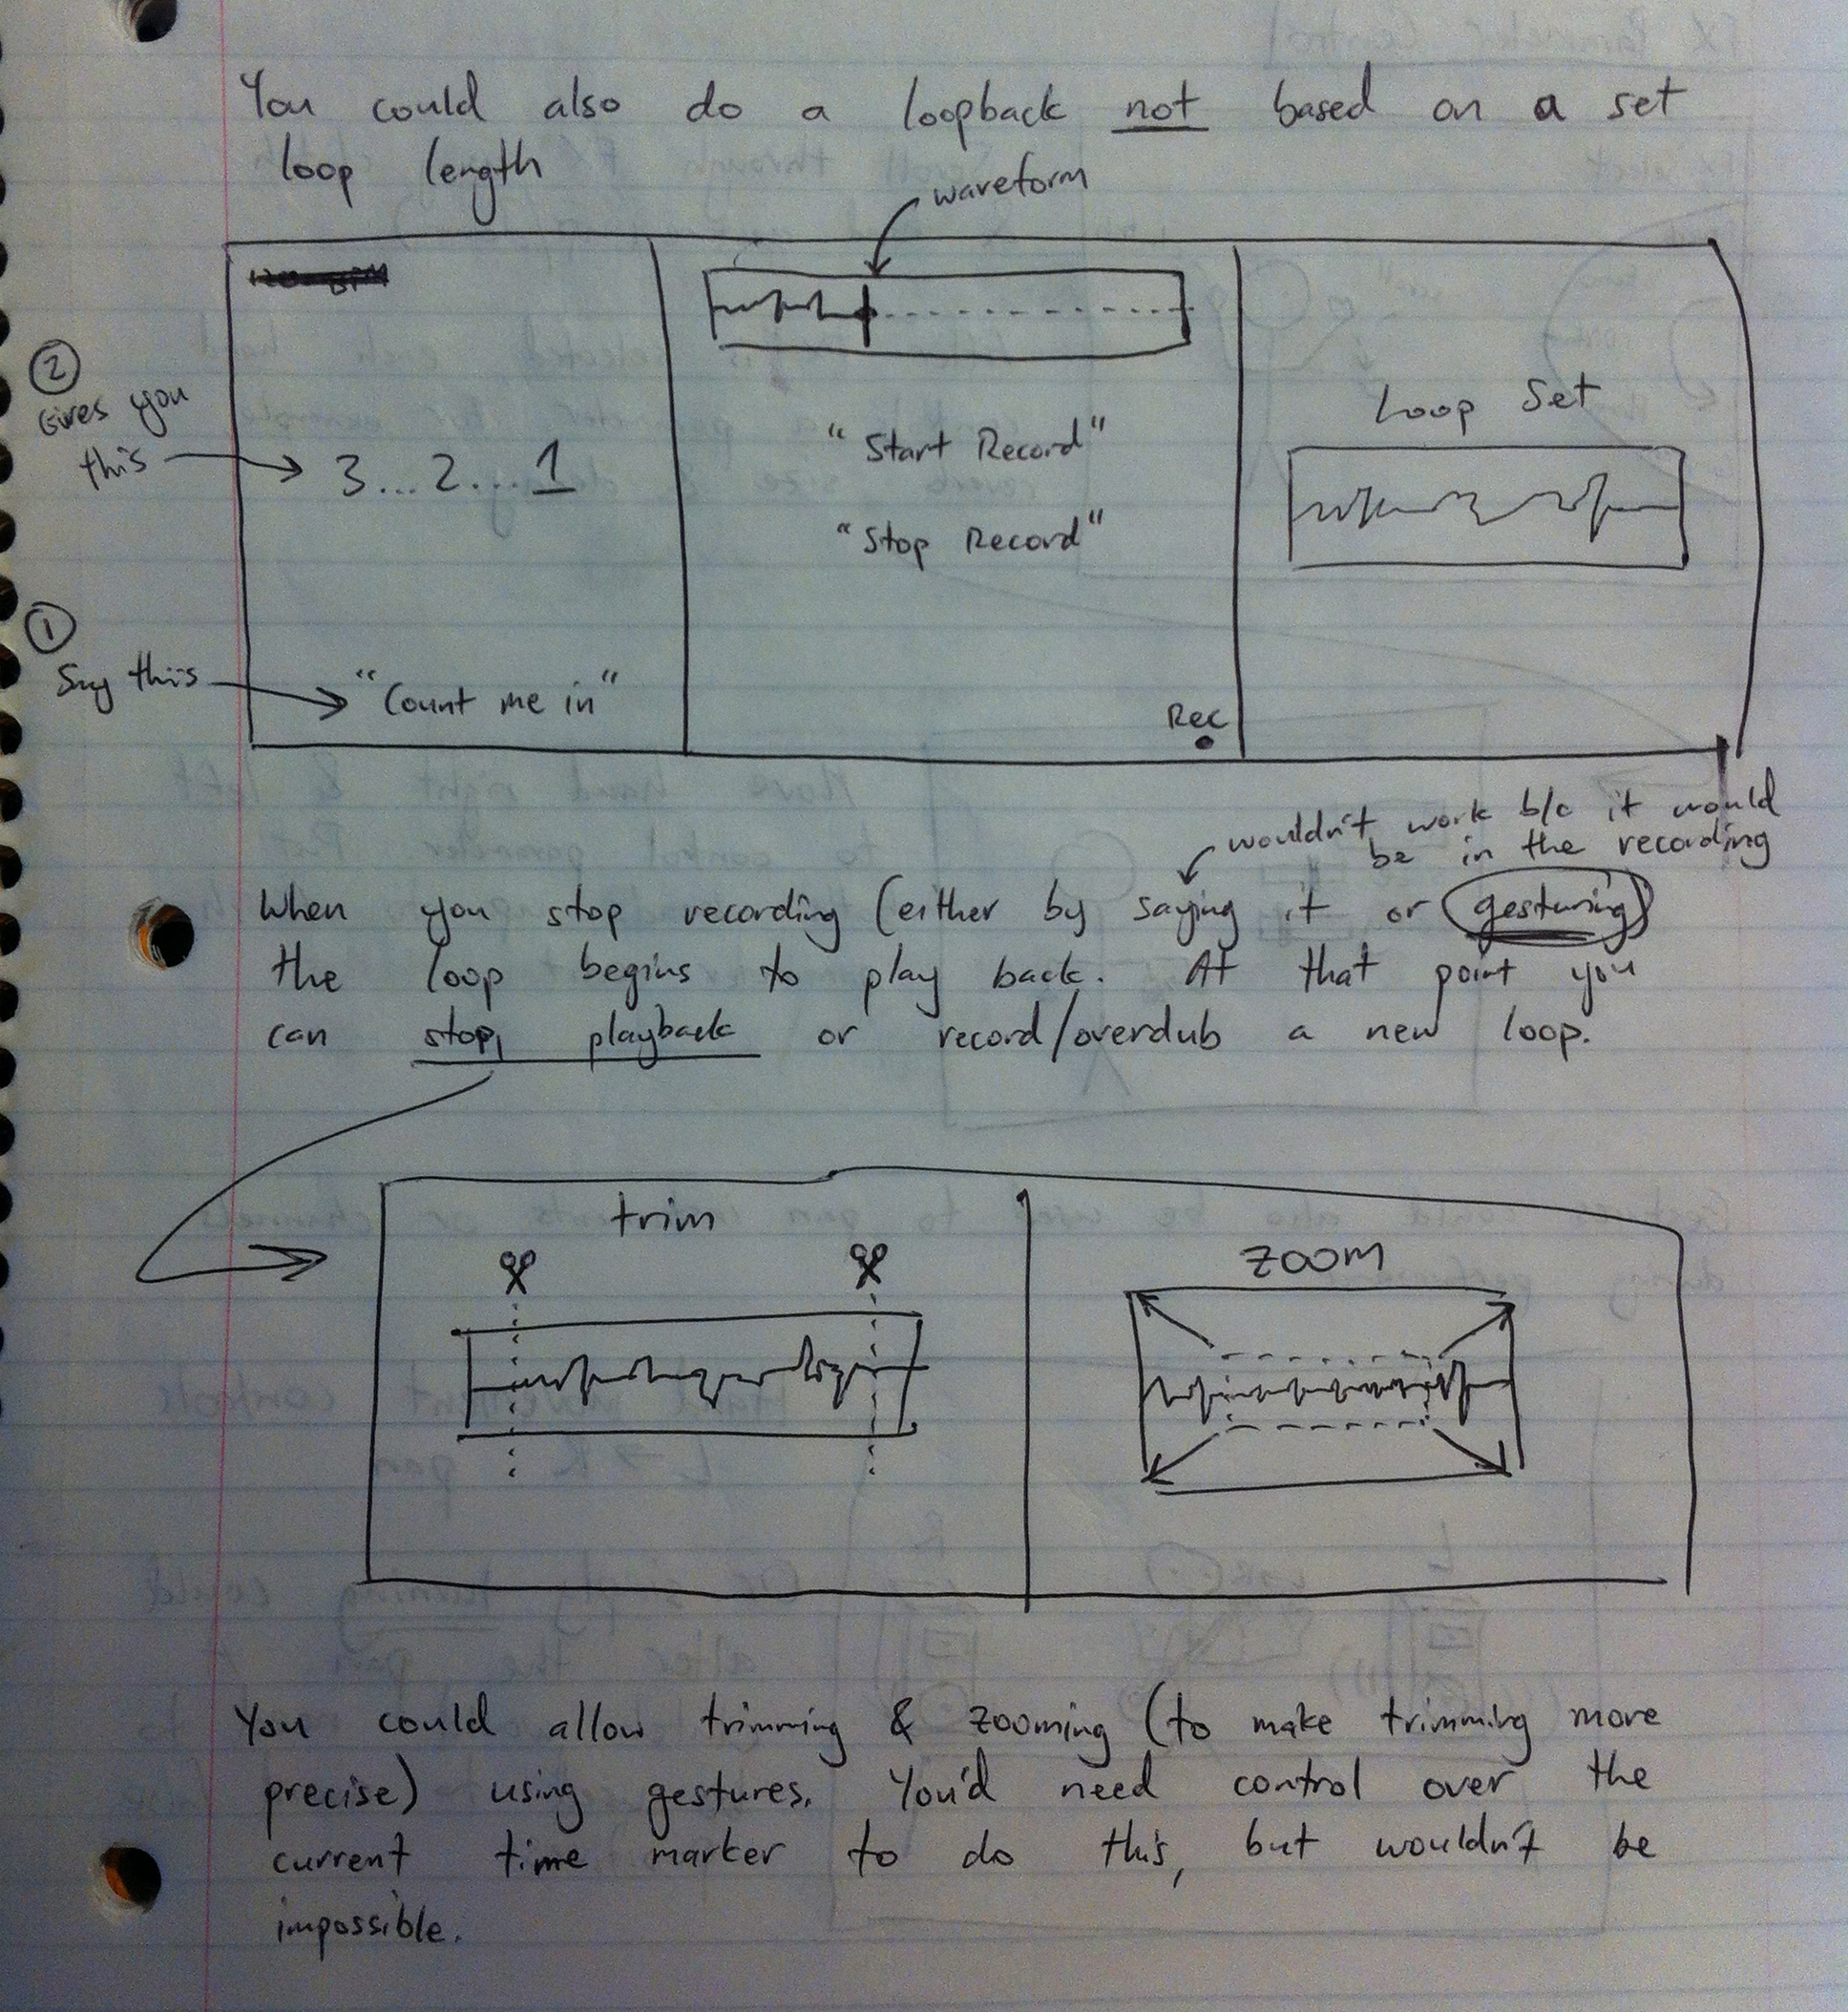 You could also do a loopback not based on a set
loop length
waveform
2
Gives you
this
3...2...1
"Start Record"
"Stop Record"
Loop Set
1
Say this
"Count me in"
Rec
wouldn't work b/c it would
be in the recording
When you stop recording (either by saying it or gesturing)
the loop begins to play back. At that point you
can stop playback or record/overdub a new loop.
trim
zoom
You could allow trimming & zooming (to make trimming more
precise) using gestures. You'd need control over the
current time marker to do this, but wouldn't be
impossible.